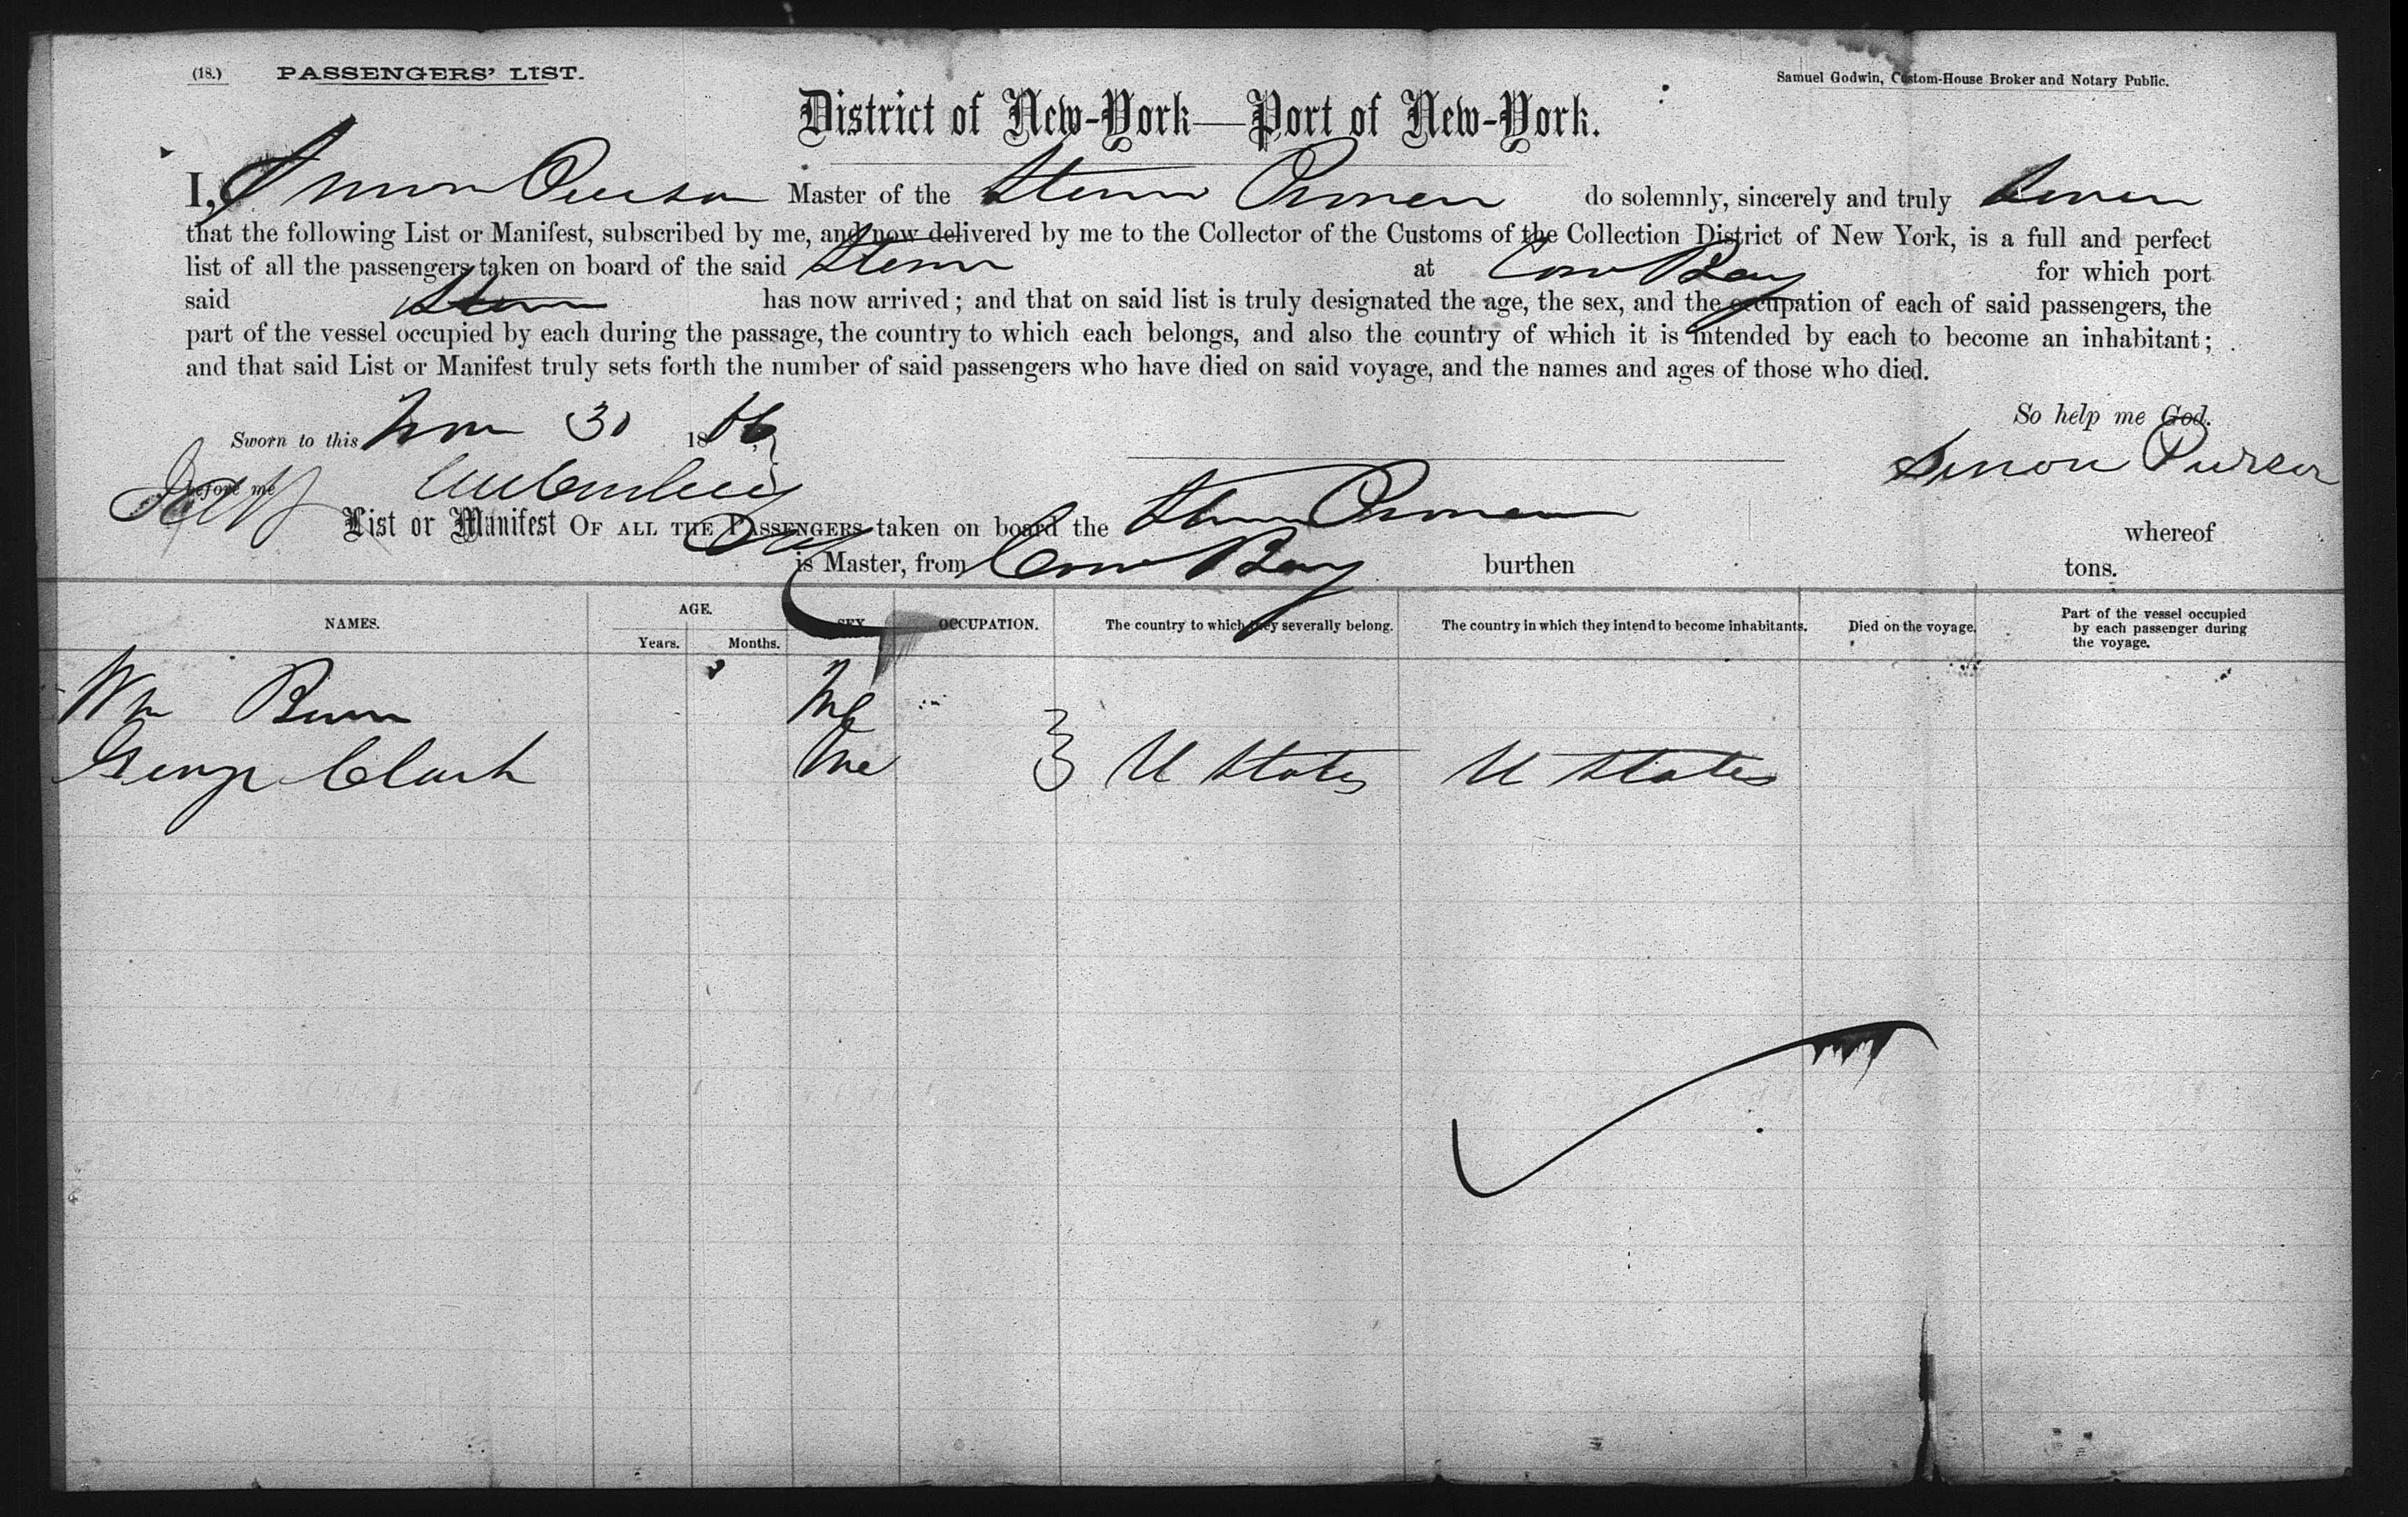 (18.) PASSENGERS' LIST.
Samuel Godwin, Custom-House Broker and Notary Public.
District of New-York—Port of New-York.
I, Simon Master of the Steamer do solemnly, sincerely and truly swear
that the following List or Manifest, subscribed by me, and now delivered by me to the Collector of the Customs of the Collection District of New York, is a full and perfect
list of all the passengers taken on board of the said Steamer at Cow Bay for which port
said Steamer has now arrived; and that on said list is truly designated the age, the sex, and the occupation of each of said passengers, the
part of the vessel occupied by each during the passage, the country to which each belongs, and also the country of which it is intended by each to become an inhabitant;
and that said List or Manifest truly sets forth the number of said passengers who have died on said voyage, and the names and ages of those who died.
So help me God.
Sworn to this Nov 30 1866
Simon
before me
List or Manifest OF ALL THE PASSENGERS taken on board the whereof
is Master, from Cow Bay burthen tons.
NAMES. AGE. Years. Months. SEX. OCCUPATION. The country to which they severally belong. The country in which they intend to become inhabitants. Died on the voyage. Part of the vessel occupied by each passenger during the voyage.
Wm
George Clark U States U States